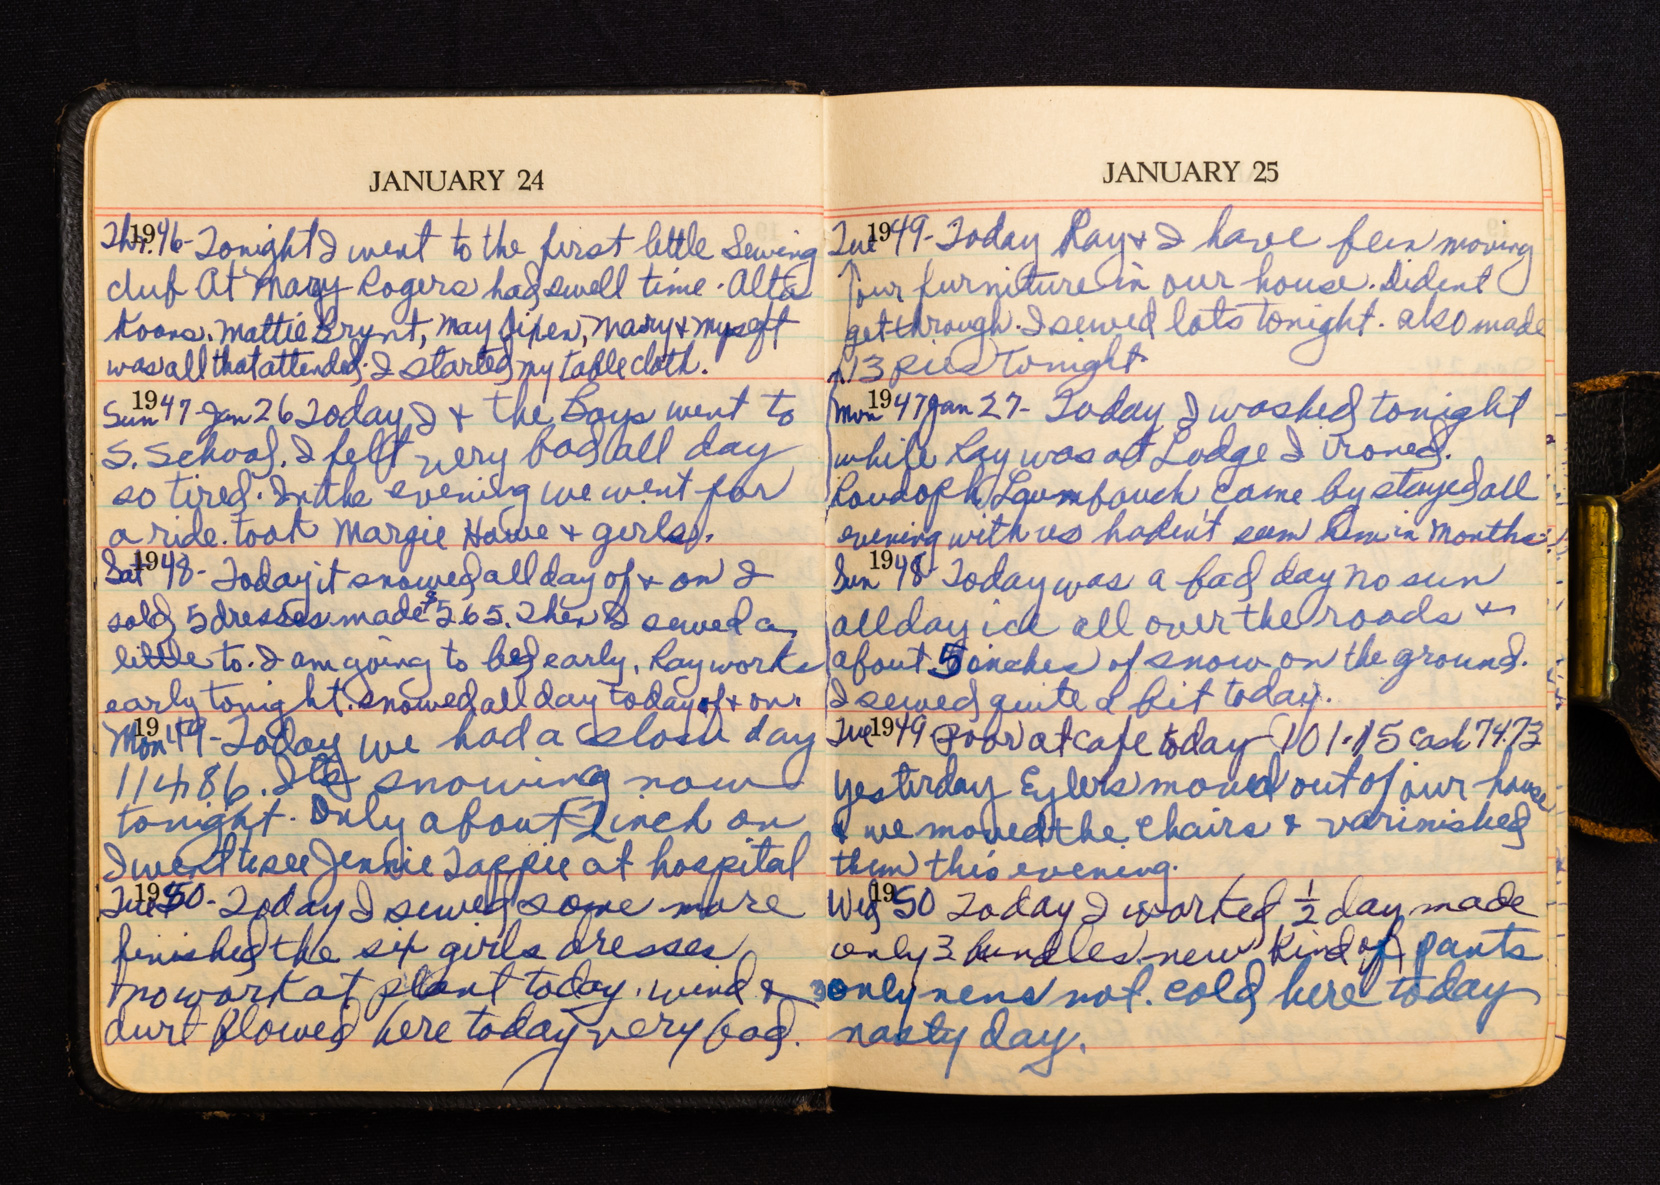 JANUARY 24
Thr. 1946- Tonight I went to the first little Sewing
club At Mary Rogers had swell time. Alta
Koons. Mattie Brynt, May Mary & Myself
was all that attended. I started my table cloth.
Sun 1947 - Jan 26 Today I & the Boys went to
S. School. I felt very bad all day
so tired. In the evening we went for
a ride. took Margie Howe & girls.
Sat 1948- Today it snowed all day of & on I
sold 5 dresses made $5.65. Then I sewed a
little to. I am going to bed early. Ray works
early tonight. snowed all day today of & on.
Mon 1949- Today we had a slow day
114.86. Its snowing now
tonight. Only about 2 inch on
I went to see Jennie Tappie at hospital
Tue 1950- Today I sewed some more
finished the six girls dresses
no work at plant today. wind &
durt Blowed here today very bad.
JANUARY 25
Tue 1949- Today Ray & I have ben moving
our furniture in our house. Dident
get through. I sewed lots tonight. also made
13 pies Tonight
Mon 1947 Jan 27- Today I washed tonight
while Ray was at Lodge I ironed.
came by stayed all
evening with us hadent seen him in Months.
Sun 1948 Today was a bad day no sun
all day ice all over the roads &
about 5 inches of snow on the ground.
I sewed quite a bit today.
Tue 1949 Poor at cafe today 101.15 cash 74.73
Yesterday Eylers moved out of our house
& we moved the chairs & varinished
them this evening.
Wed 1950 Today I worked ½ day made
only 3 bundles new kind of pants
only not. cold here today
nasty day.